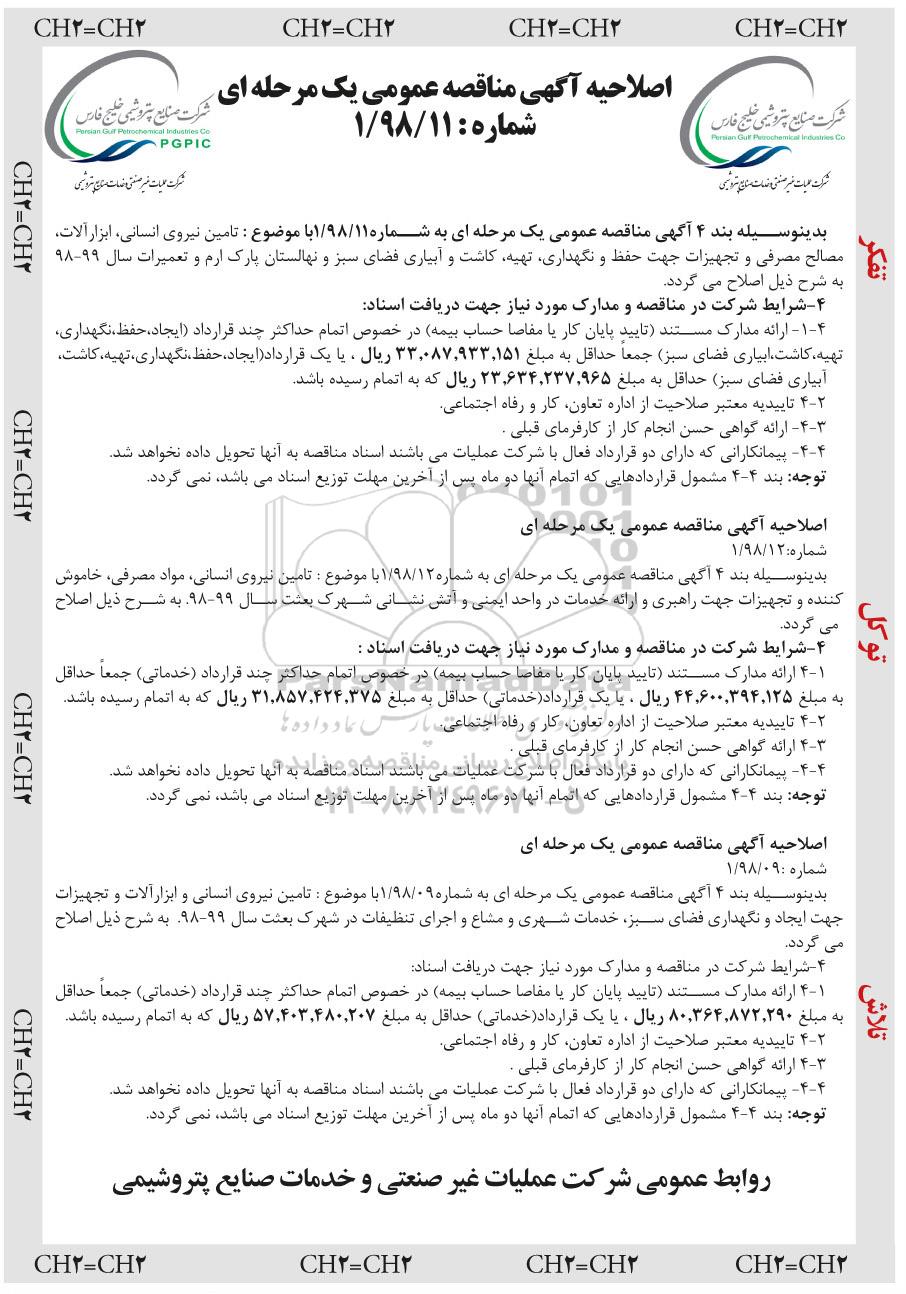 CH۲=CH۲ CH۲=CH۲ CH۲=CH۲ CH۲=CH۲
اصلاحیه آگهی مناقصه عمومی یک مرحله ای
شماره : ۱/۹۸/۱۱
شرکت صنایع پتروشیمی خلیج فارس
Persian Gulf Petrochemical Industries Co
PGPIC
شرکت عملیات غیر صنعتی و خدمات صنایع پتروشیمی
شرکت صنایع پتروشیمی خلیج فارس
Persian Gulf Petrochemical Industries Co
شرکت عملیات غیر صنعتی و خدمات صنایع پتروشیمی
بدینوسیله بند ۴ آگهی مناقصه عمومی یک مرحله ای به شماره۱/۹۸/۱۱با موضوع : تامین نیروی انسانی، ابزارآلات،
مصالح مصرفی و تجهیزات جهت حفظ و نگهداری، تهیه، کاشت و آبیاری فضای سبز و نهالستان پارک ارم و تعمیرات سال ۹۹-۹۸
به شرح ذیل اصلاح می گردد.
۴-شرایط شرکت در مناقصه و مدارک مورد نیاز جهت دریافت اسناد:
۴-۱- ارائه مدارک مستند (تایید پایان کار یا مفاصا حساب بیمه) در خصوص اتمام حداکثر چند قرارداد (ایجاد،حفظ،نگهداری،
تهیه،کاشت،ابیاری فضای سبز) جمعاً حداقل به مبلغ ۳۳,۰۸۷,۹۳۳,۱۵۱ ریال ، یا یک قرارداد(ایجاد،حفظ،نگهداری،تهیه،کاشت،
آبیاری فضای سبز) حداقل به مبلغ ۲۳,۶۳۴,۲۳۷,۹۶۵ ریال که به اتمام رسیده باشد.
۴-۲ تاییدیه معتبر صلاحیت از اداره تعاون، کار و رفاه اجتماعی.
۴-۳- ارائه گواهی حسن انجام کار از کارفرمای قبلی .
۴-۴- پیمانکارانی که دارای دو قرارداد فعال با شرکت عملیات می باشند اسناد مناقصه به آنها تحویل داده نخواهد شد.
توجه: بند ۴-۴ مشمول قراردادهایی که اتمام آنها دو ماه پس از آخرین مهلت توزیع اسناد می باشد، نمی گردد.
اصلاحیه آگهی مناقصه عمومی یک مرحله ای
شماره:۱/۹۸/۱۲
بدینوسیله بند ۴ آگهی مناقصه عمومی یک مرحله ای به شماره۱/۹۸/۱۲با موضوع : تامین نیروی انسانی، مواد مصرفی، خاموش
کننده و تجهیزات جهت راهبری و ارائه خدمات در واحد ایمنی و آتش نشانی شهرک بعثت سال ۹۹-۹۸. به شرح ذیل اصلاح
می گردد.
۴-شرایط شرکت در مناقصه و مدارک مورد نیاز جهت دریافت اسناد :
۴-۱ ارائه مدارک مستند (تایید پایان کار یا مفاصا حساب بیمه) در خصوص اتمام حداکثر چند قرارداد (خدماتی) جمعاً حداقل
به مبلغ ۴۴,۶۰۰,۳۹۴,۱۲۵ ریال ، یا یک قرارداد(خدماتی) حداقل به مبلغ ۳۱,۸۵۷,۴۲۴,۳۷۵ ریال که به اتمام رسیده باشد.
۴-۲ تاییدیه معتبر صلاحیت از اداره تعاون، کار و رفاه اجتماعی.
۴-۳ ارائه گواهی حسن انجام کار از کارفرمای قبلی .
۴-۴- پیمانکارانی که دارای دو قرارداد فعال با شرکت عملیات می باشند اسناد مناقصه به آنها تحویل داده نخواهد شد.
توجه: بند ۴-۴ مشمول قراردادهایی که اتمام آنها دو ماه پس از آخرین مهلت توزیع اسناد می باشد، نمی گردد.
ParsNamadData
پایگاه اطلاع رسانی مناقصه و مزایده
اصلاحیه آگهی مناقصه عمومی یک مرحله ای
شماره :۱/۹۸/۰۹
بدینوسیله بند ۴ آگهی مناقصه عمومی یک مرحله ای به شماره۱/۹۸/۰۹با موضوع : تامین نیروی انسانی و ابزارآلات و تجهیزات
جهت ایجاد و نگهداری فضای سبز، خدمات شهری و مشاع و اجرای تنظیفات در شهرک بعثت سال ۹۹-۹۸. به شرح ذیل اصلاح
می گردد.
۴-شرایط شرکت در مناقصه و مدارک مورد نیاز جهت دریافت اسناد:
۴-۱ ارائه مدارک مستند (تایید پایان کار یا مفاصا حساب بیمه) در خصوص اتمام حداکثر چند قرارداد (خدماتی) جمعاً حداقل
به مبلغ ۸۰,۳۶۴,۸۷۲,۲۹۰ ریال ، یا یک قرارداد(خدماتی) حداقل به مبلغ ۵۷,۴۰۳,۴۸۰,۲۰۷ ریال که به اتمام رسیده باشد.
۴-۲ تاییدیه معتبر صلاحیت از اداره تعاون، کار و رفاه اجتماعی.
۴-۳ ارائه گواهی حسن انجام کار از کارفرمای قبلی .
۴-۴- پیمانکارانی که دارای دو قرارداد فعال با شرکت عملیات می باشند اسناد مناقصه به آنها تحویل داده نخواهد شد.
توجه: بند ۴-۴ مشمول قراردادهایی که اتمام آنها دو ماه پس از آخرین مهلت توزیع اسناد می باشد، نمی گردد.
روابط عمومی شرکت عملیات غیر صنعتی و خدمات صنایع پتروشیمی
تفکر
توکل
تلاش
CH۲=CH۲
CH۲=CH۲
CH۲=CH۲
CH۲=CH۲
CH۲=CH۲ CH۲=CH۲ CH۲=CH۲ CH۲=CH۲